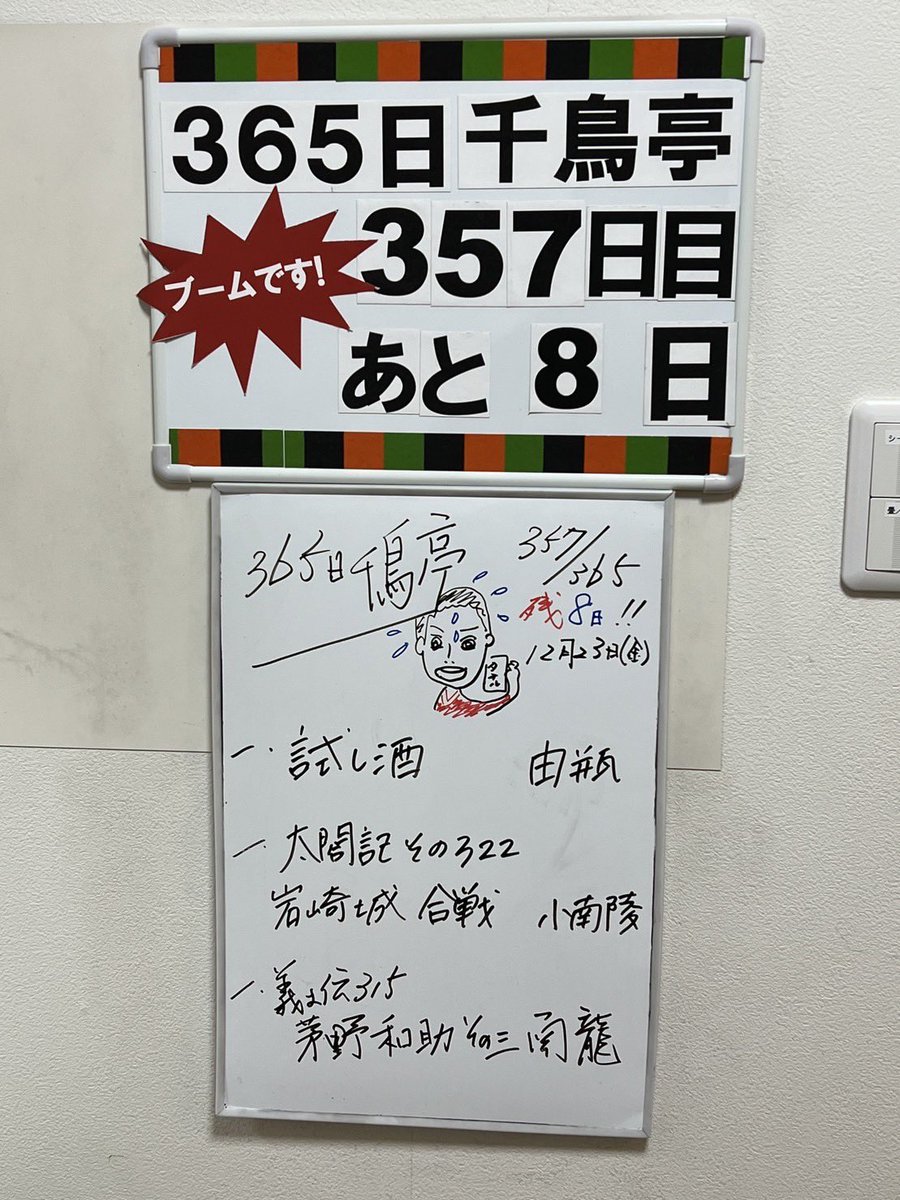 365日千鳥亭
ブームです!
357日目
あと8日
365日千鳥亭
357/365
残8日!!
12月23日(金)
一.試し酒 由瓶
一.太閤記その322
岩崎城合戦 小南陵
一.義士伝315
茅野和助その三 南龍